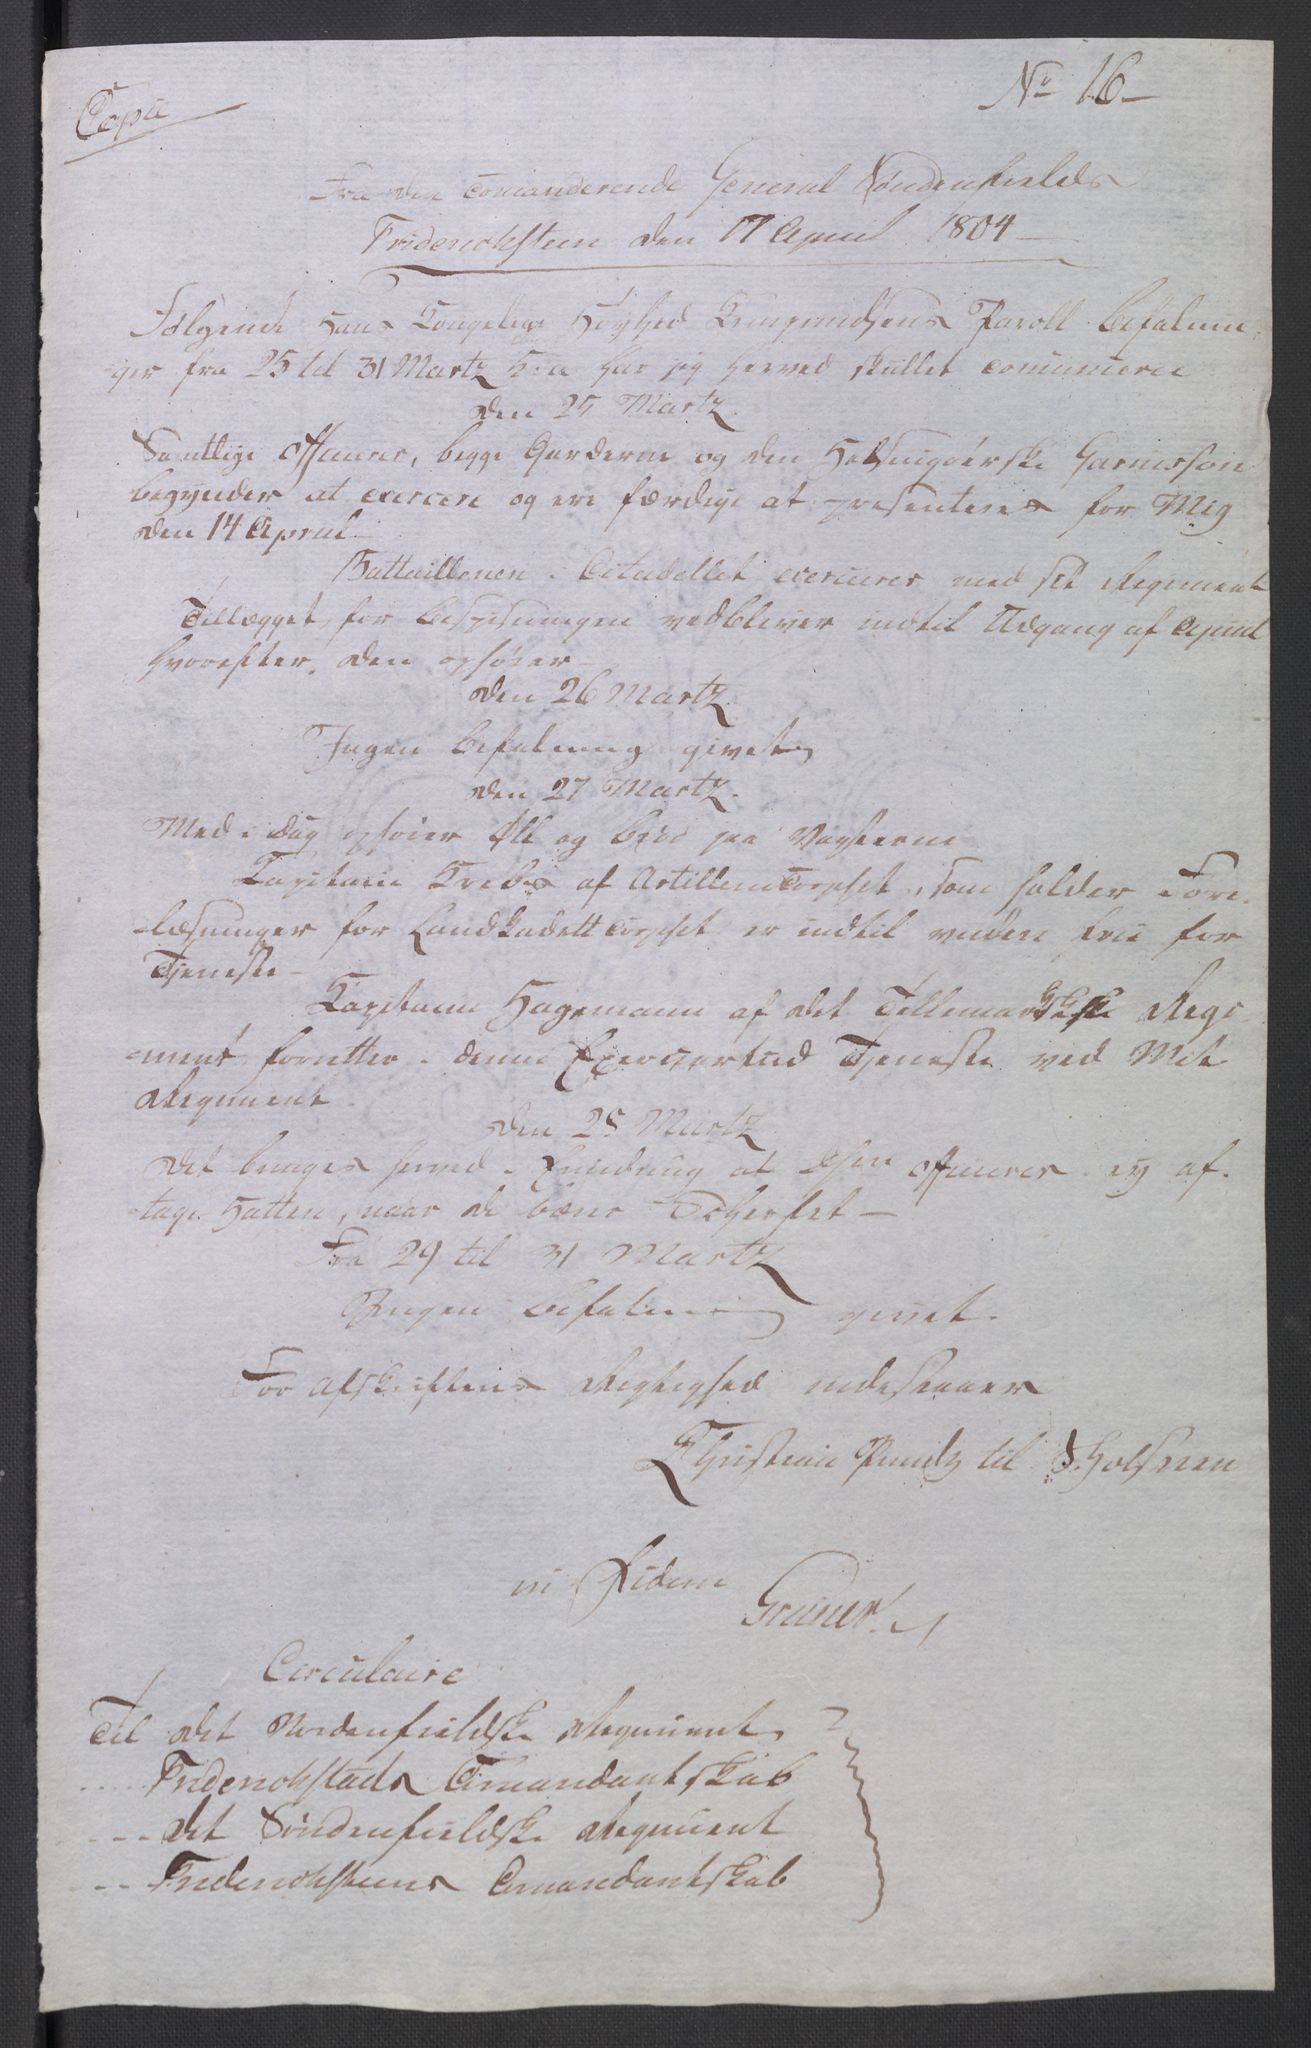 Copie
No 16
Fra den Comanderende General Søndenfields
Friderichsteen den 17 April 1804
Følgende Hans Kongelige Høyhed Kronprindsens Paroll Befalnin-
ger fra 25 til 31 Martz h: a har jeg herved skullet comunicere
den 25 Martz
Samtlige Officerer, begge Garderne og den Helsingøerske Garnisson
begynder at exercere og ere færdige at presenteres for Mig
den 14 April
Battaillonen i Citadellet exercerer med sit Regiment
Tillægget for Bespisningen vedbliver indtil Udgang af April
hvorefter den ophører
den 26 Martz
Ingen Befalning givet
den 27 Martz
Med i Dag ophører Øll og Brød paa Vagterne
Capitain Krebs af Artillerie Corpset, som holder Fore-
læsninger for Landkadett Corpset er indtil viidere frie for
Tjeneste
Capitain Hagemann af det Tellemarkske Regi-
ment forretter i denne Exerceertiid Tjeneste ved Mit
Regiment
den 28 Martz
Det bringes herved i Erindring at Officerer ey af-
tage Hatten, naar de bære Scherfet
Fra 29 til 31 Martz
Ingen Befalning givet.
For Afskriftens Rigtighed indestaaer
Christian Printz til S. Holsteen
in Fidem
Grüner
Circulaire
Til det Nordenfieldske Regiment
Friderichstads Comandantskab
det Søndenfieldske Regiment
Friderichsteens Comandantskab